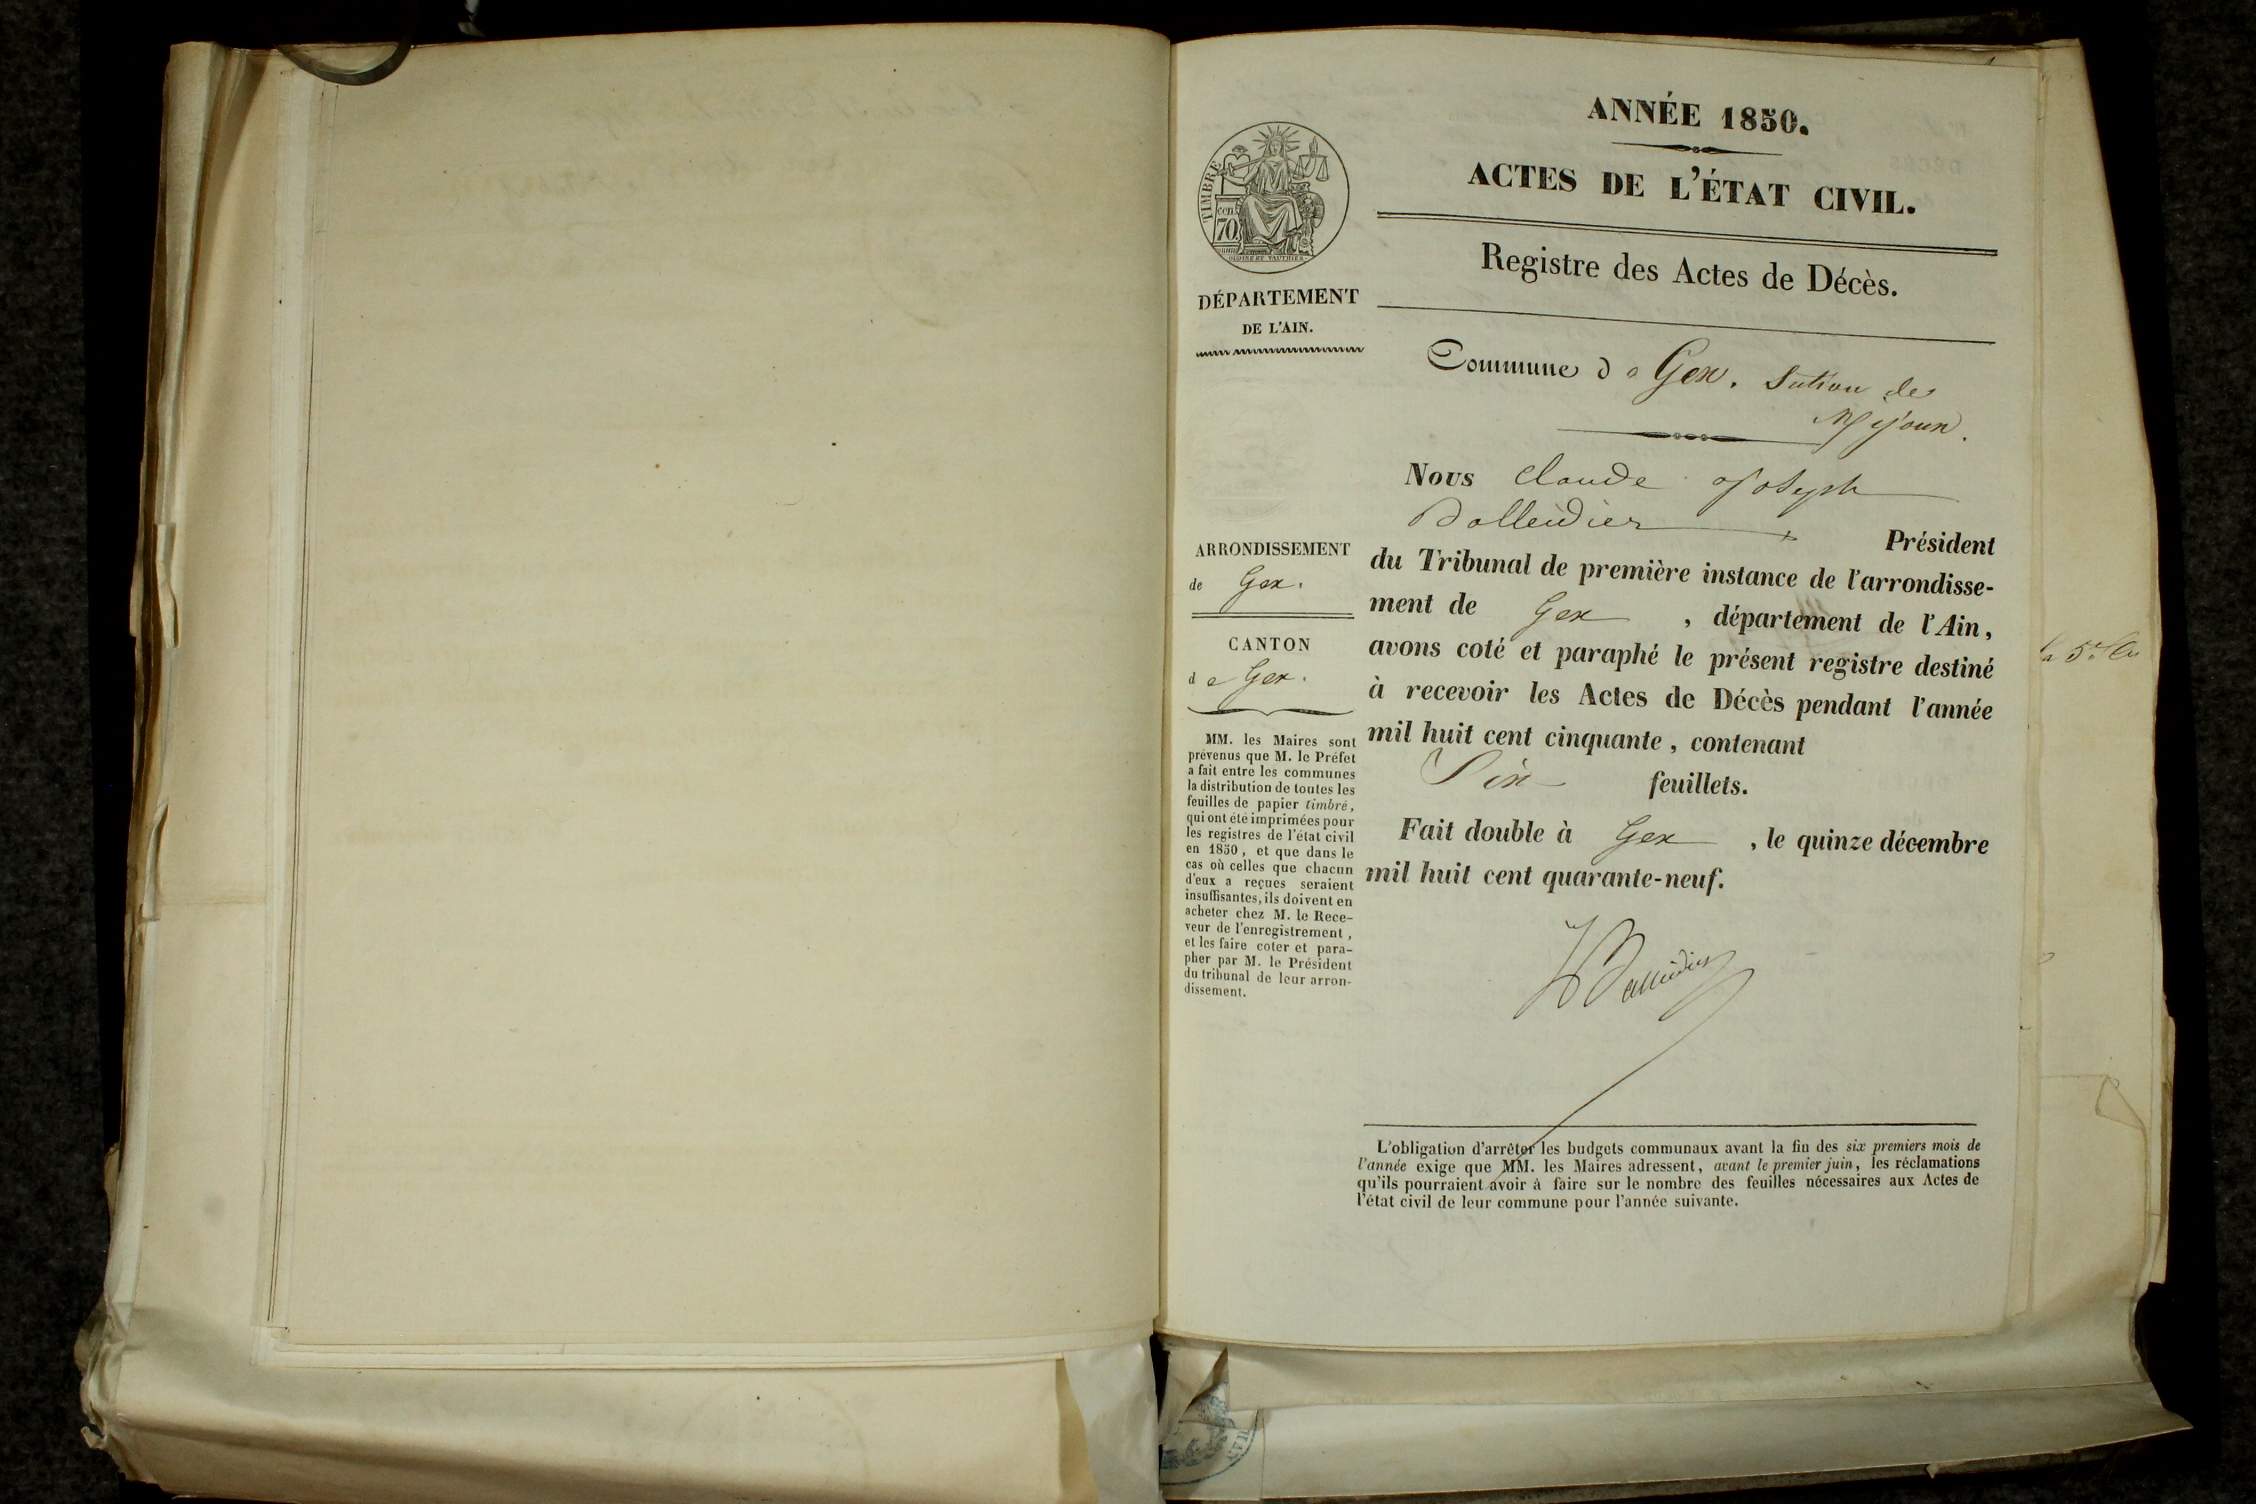 ANNÉE 1850.
ACTES DE L'ÉTAT CIVIL.
Registre des Actes de Décès.
TIMBRE
70 cen.
DÉPARTEMENT
DE L'AIN.
Commune de Gex. Section de
Mijoux.
Nous Claude Joseph
Balleidier Président
du Tribunal de première instance de l'arrondisse-
ment de Gex, département de l'Ain,
avons coté et paraphé le présent registre destiné
à recevoir les Actes de Décès pendant l'année
mil huit cent cinquante, contenant
Six feuillets.
Fait double à Gex, le quinze décembre
mil huit cent quarante-neuf.
Balleidier
ARRONDISSEMENT
de Gex.
CANTON
de Gex.
MM. les Maires sont
prévenus que M. le Préfet
a fait entre les communes
la distribution de toutes les
feuilles de papier timbré,
qui ont été imprimées pour
les registres de l'état civil
en 1850, et que dans le
cas où celles que chacun
d'eux a reçues seraient
insuffisantes, ils doivent en
acheter chez M. le Rece-
veur de l'enregistrement,
et les faire coter et para-
pher par M. le Président
du tribunal de leur arron-
dissement.
L'obligation d'arrêter les budgets communaux avant la fin des six premiers mois de
l'année exige que MM. les Maires adressent, avant le premier juin, les réclamations
qu'ils pourraient avoir à faire sur le nombre des feuilles nécessaires aux Actes de
l'état civil de leur commune pour l'année suivante.